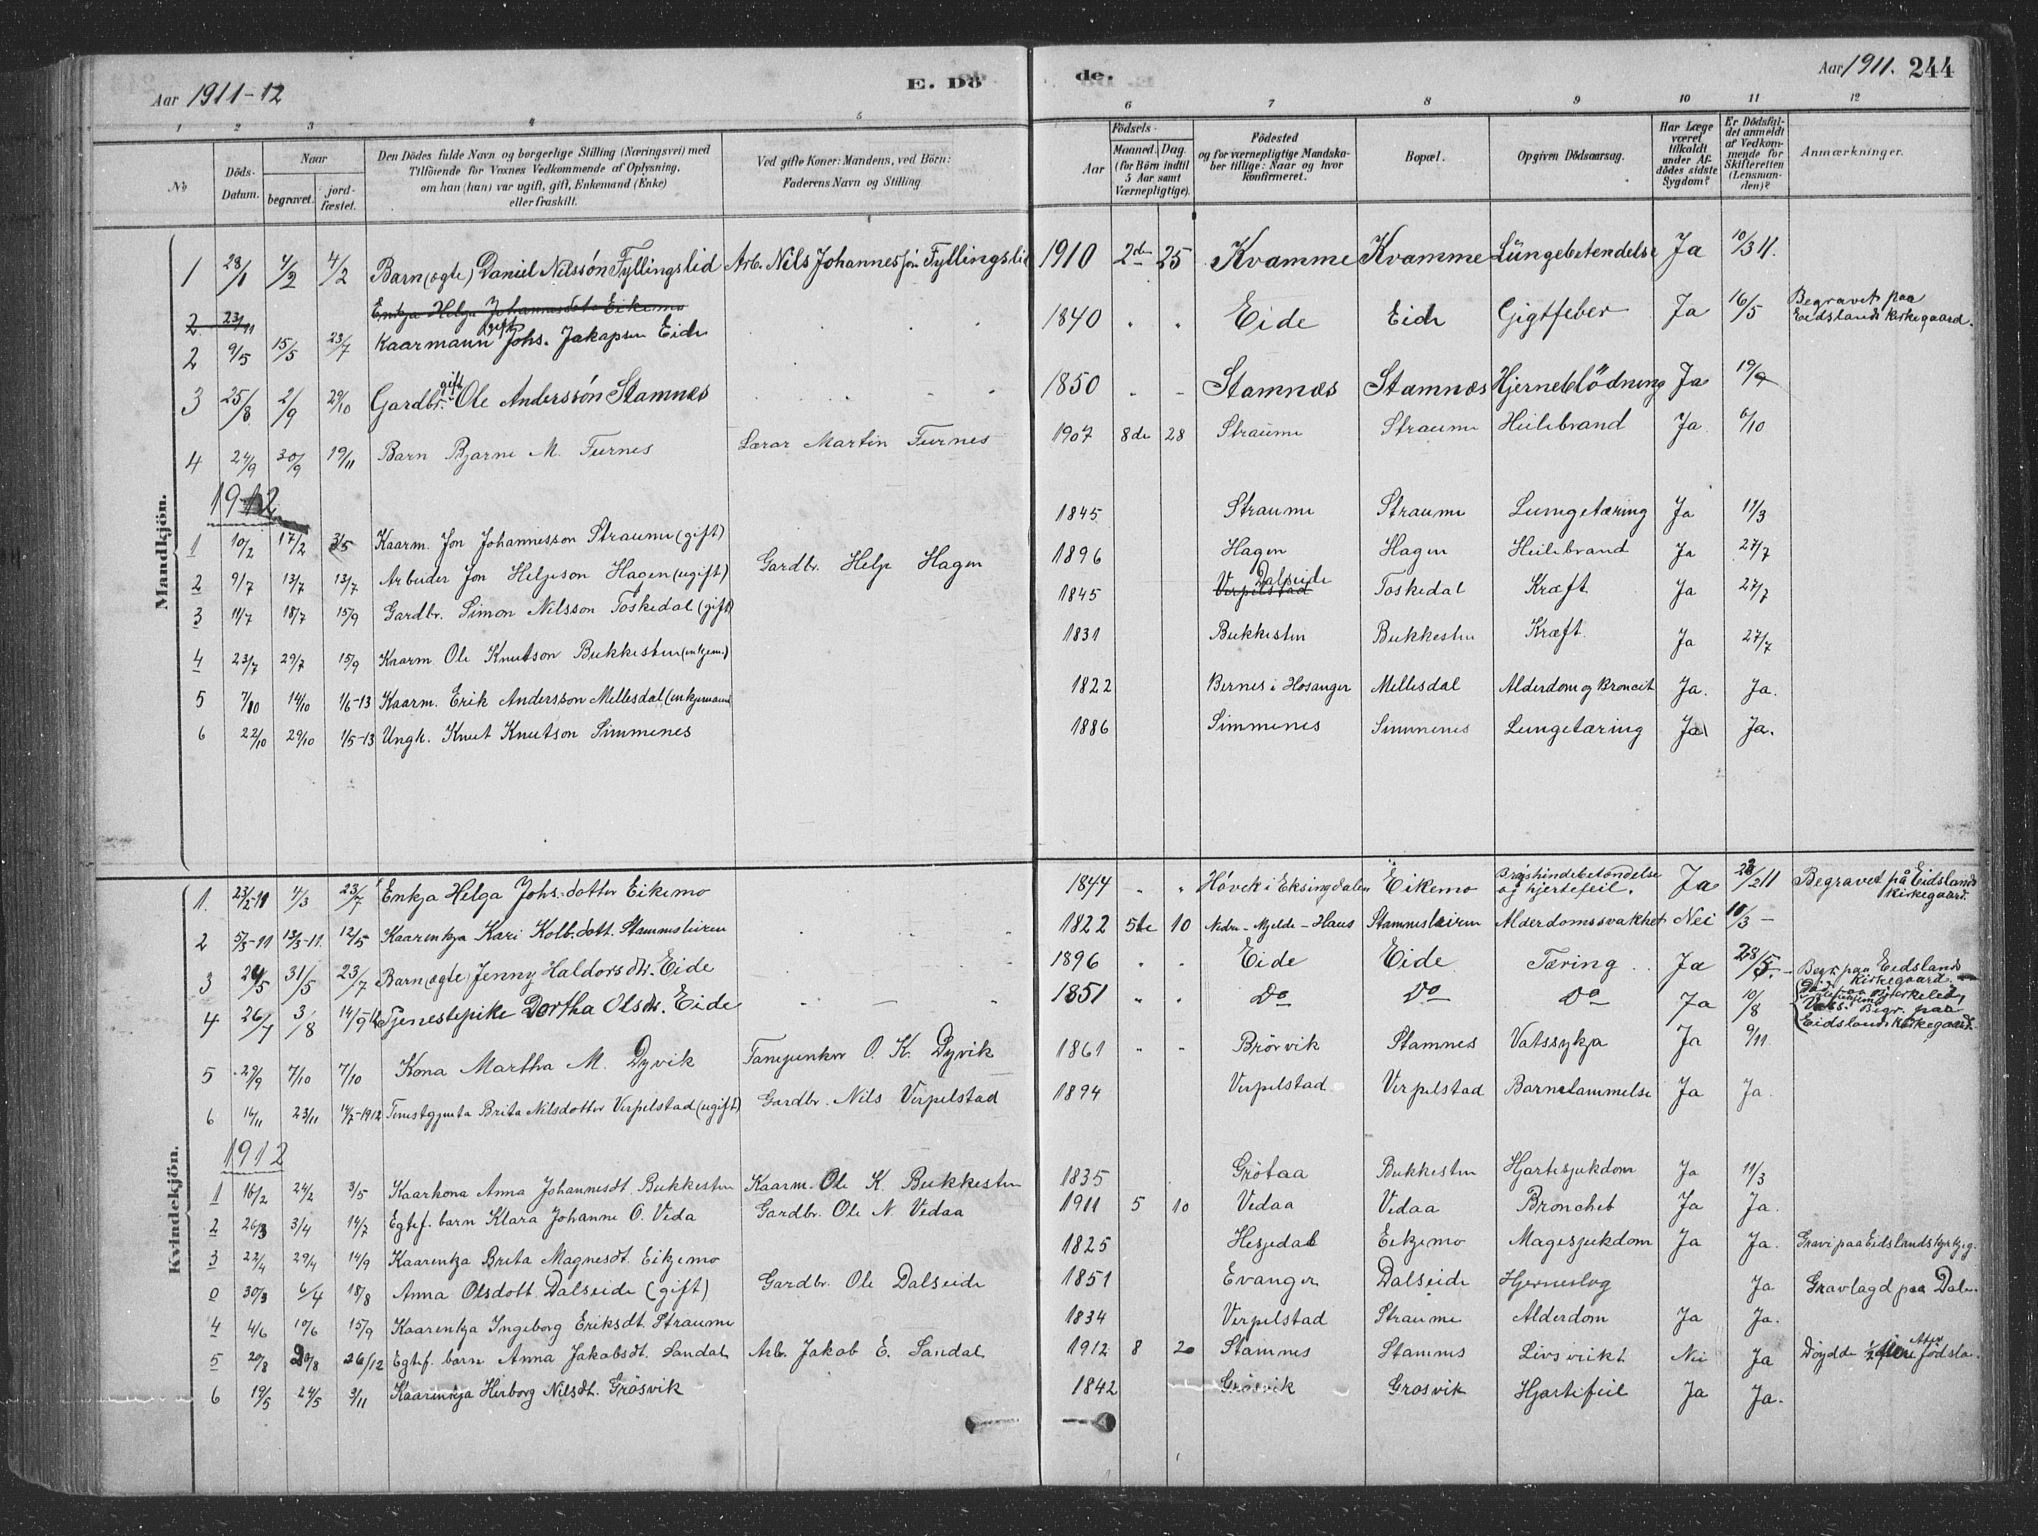 Aar 1911-12 E. Dö de. Aar 1911. 244
1 2 3 4 5 6 7 8 9 10 11 12
No Döds-Datum. Naar begravet. jord-fæstet. Den Dödes fulde Navn og borgerlige Stilling (Næringsvei) med Tilföiende for Voxnes Vedkommende af Oplysning, om han (hun) var ugift, gift, Enkemand (Enke) eller fraskilt. Ved gifte Koner: Mandens, ved Börn: Faderens Navn og Stilling Aar Födsels- Maaned. Dag. (for Börn indtil 5 Aar samt Værnepligtige). Födested og for værnepligtige Mandska-ber tillige: Naar og hvor konfirmeret. Bopæl. Opgiven Dödsaarsag. Har Læge været tilkaldt under Af-dödes sidste Sygdom? Er Dödsfal-det anmeldt af Vedkom-mende for Skifteretten (Lensman-den)? Anmærkninger.
Mandkjön.
1 28/1 4/2 4/2 Barn (ægte) Daniel Nilssön Fyllingslid Arb. Nils Johannesssön Fyllingslid 1910 2den 25 Kvamme Kvamme Lüngebetendelse Ja 10/3 11.
2 23/11 Enkja Helga Johannesdotter Eikemo
2 9/5 15/5 23/7 Kaarmann gift Johs. Jakapsen Eide 1840 " " Eide Eide Gigtfeber Ja 16/5 Begravet paa Eidslands kirkegaard.
3 25/8 2/9 29/10 Gardbr. gift Ole Anderssön Stamnæs 1850 - - Stamnæs Stamnæs Hjerneblödning Ja 19/9
4 24/9 30/9 19/11 Barn Bjarne M. Furnes Lærar Martin Furnes 1907 8de 28 Straume Straume Heilebrand Ja 6/10
1912
1 10/2 17/2 3/5 Kaarm. Jon Johannesson Straume (gift) 1845 Straume Straume Lungetæring Ja 11/3
2 9/7 13/7 13/7 Arbeider Jon Helgeson Hagen (ugift) Gardbr. Helge Hagen 1896 Hagen Hagen Heilebrand Ja 27/7
3 11/7 18/7 15/9 Gardbr. Simon Nilsson Toskedal (gift) 1845 Virpelstad Dalseide Toskedal Kræft Ja 27/7
4 23/7 29/7 15/9 Kaarm. Ole Knutson Bukkesten (enkjem.) 1831 Bukkesten Bukkesten Kræft. Ja 27/7
5 7/10 14/10 1/6-13 Kaarm. Erik Andersson Mellesdal (enkjemann) 1822 Bernes i Hosanger Mellesdal Alderdom og Broncit Ja. Ja.
6 22/10 29/10 1/5-13 Ungk. Knut Knutson Simmenes 1886 Simmenes Simmenes Lungetæring Ja Ja.
Kvindekjön.
1. 23/2-11 4/3 23/7 Enkja Helga Johs.dotter Eikemo 1844 " " Hövek i Eksingdalen Eikemo Brösthindebetöndelse og hjertefeil. Ja 28/2 11 Begravet på Eidslands kirkegaard.
2 5/3-11 13/3-11. 12/5 Kaarenkja Kari Kolb.dott. Stamnesleiren 1822 5te 10 Nedre-Mjelde-Haus Stamnesleiren Alderdomssvakhet Nei 10/3 -
3 24/5 31/5 23/7 Barn (ægte) Jenny Haldorsdtr. Eide 1896 " " Eide Eide Tæring Ja 28/5. Begr. paa Eidslands kirkegaard.
4 26/7 3/8 14/9 Tjenestepike Dortha Olsdtr. Eide 1851 " " Do Do Do Ja 10/8 Begr. paa Eidslands kirkegaard.
5 29/9 7/10 7/10 Kona Martha M. Dyvik O. K. Dyvik 1861 " " Brörvik Stamnes Vatssykja Ja 9/11
6 14/11 23/11 14/7-1912 Tenestgjenta Brita Nilsdotter Virpelstad (ugift) Gardbr. Nils Virpelstad 1894 Virpelstad Virpelstad Barnelammelse Ja Ja.
1912
1 16/2 24/2 3/5 Kaarkona Anna Johannesdt. Bukkesten Kaarm. Ole K. Bukkesten 1835 Grötaa Bukkesten Hjartesjukdom Ja 11/3
2 26/3 3/4 14/7 Egtef. barn Klara Johanne O. Veda Gardbr. Ole N. Vedaa 1911 5 10 Vedaa Vedaa Bronchet Ja Ja.
3 22/4 29/4 14/9 Kaarenkja Brita Magnesdt. Eikjemo 1825 Hesjedal Eikjemo Magesjukdom Ja Ja. Gravi paa Eidslands kyrkjeg.
0 30/3 6/4 18/8 Anna Olsdott. Dalseide (gift) Gardbr. Ole Dalseide 1851 Evanger Dalseide Hjerneslag Ja Gravlagd paa Dale.
4 4/6 10/6 15/9 Kaarenkja Ingeborg Eriksdt. Straume 1834 Virpelstad Straume Alderdom Ja Ja.
5 20/8 20/8 26/12 Egtef. barn Anna Jakobsdt. Sandal Arb. Jakob E. Sandal 1912 8 20 Stamnes Stamnes Livsveikt Nei Ja Döydde 1/2 time etter födsla.
6 19/5 24/5 3/11 Kaarenkja Herborg Nilsdt. Grösvik 1842 Grösvik Grösvik Hjartefeil Ja Ja.